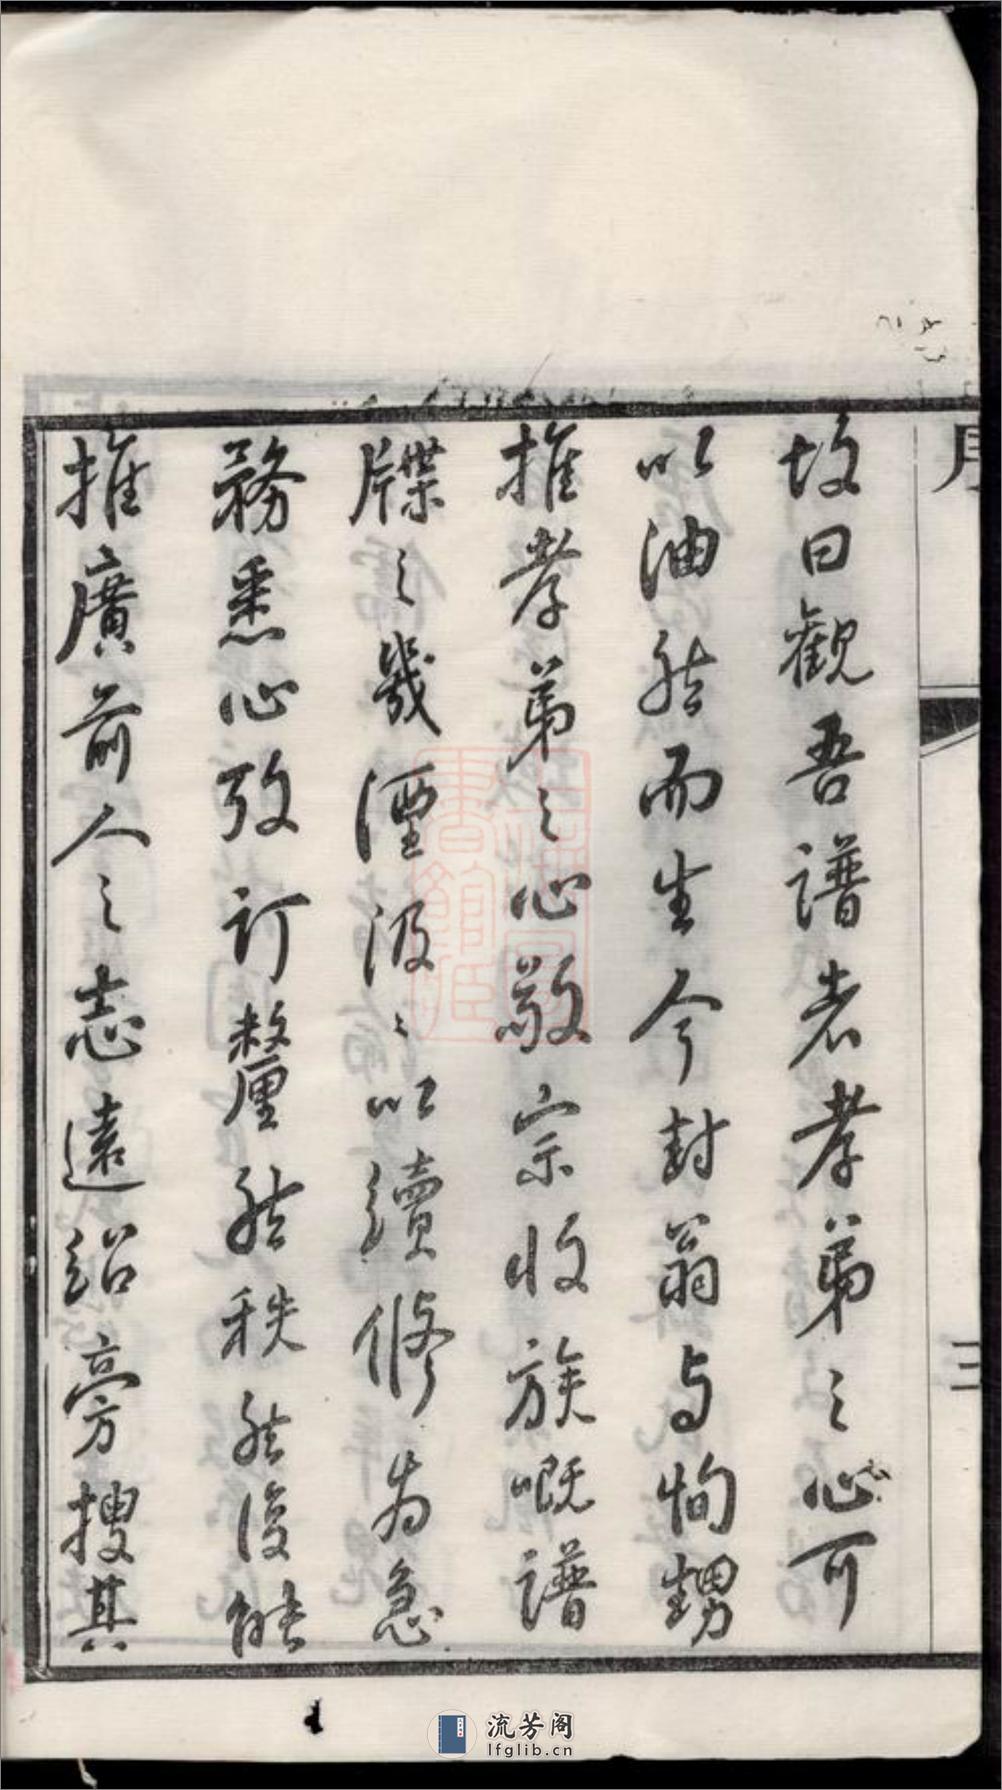 序
三
故曰觀吾譜者孝弟之心可
以油然而生今封翁与恂甥
推孝弟之心敬宗收族嘅譜
牒之幾湮汲〻以續修為急
務悉心攷訂釐然秩然後能
推廣前人之志遠紹旁搜其
流芳阁
lfglib.cn